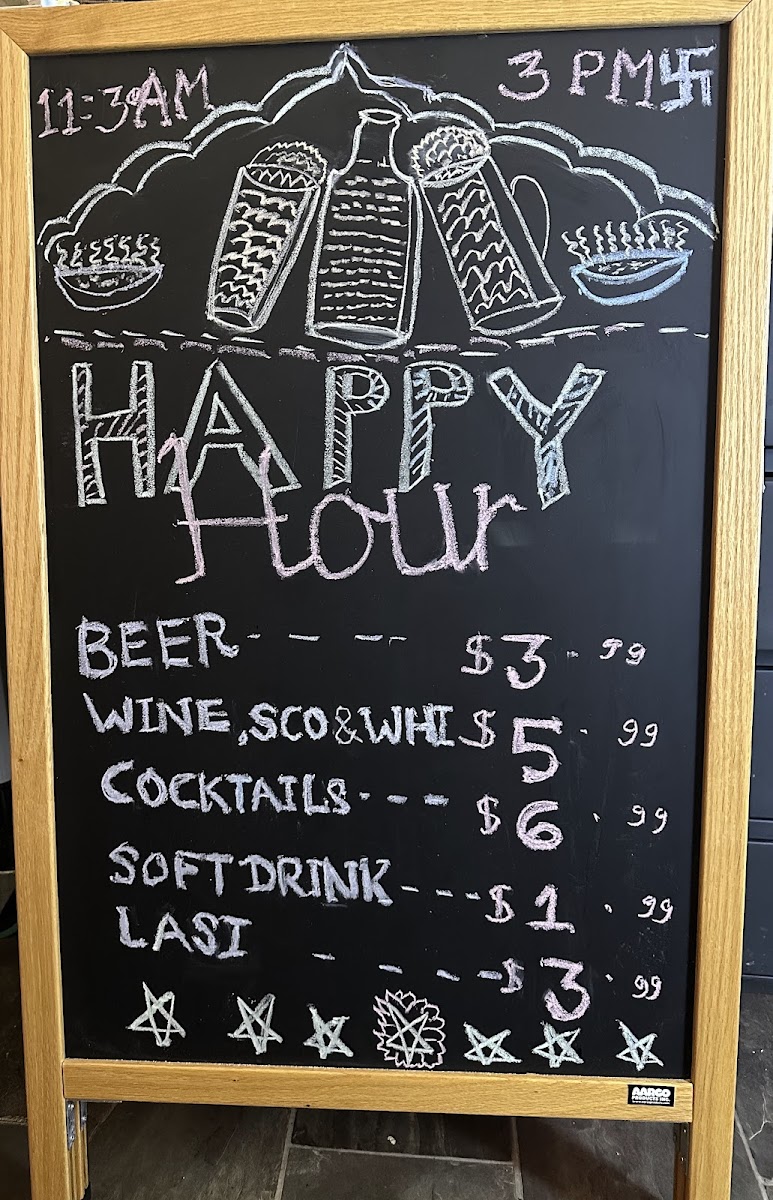 11:30AM
3 PM卐
HAPPY
Hour
BEER---- $3.99
WINE,SCO&WHI $5.99
COCKTAILS---- $6.99
SOFT DRINK---$1.99
LASI ---- $3.99
AARCO
PRODUCTS INC.